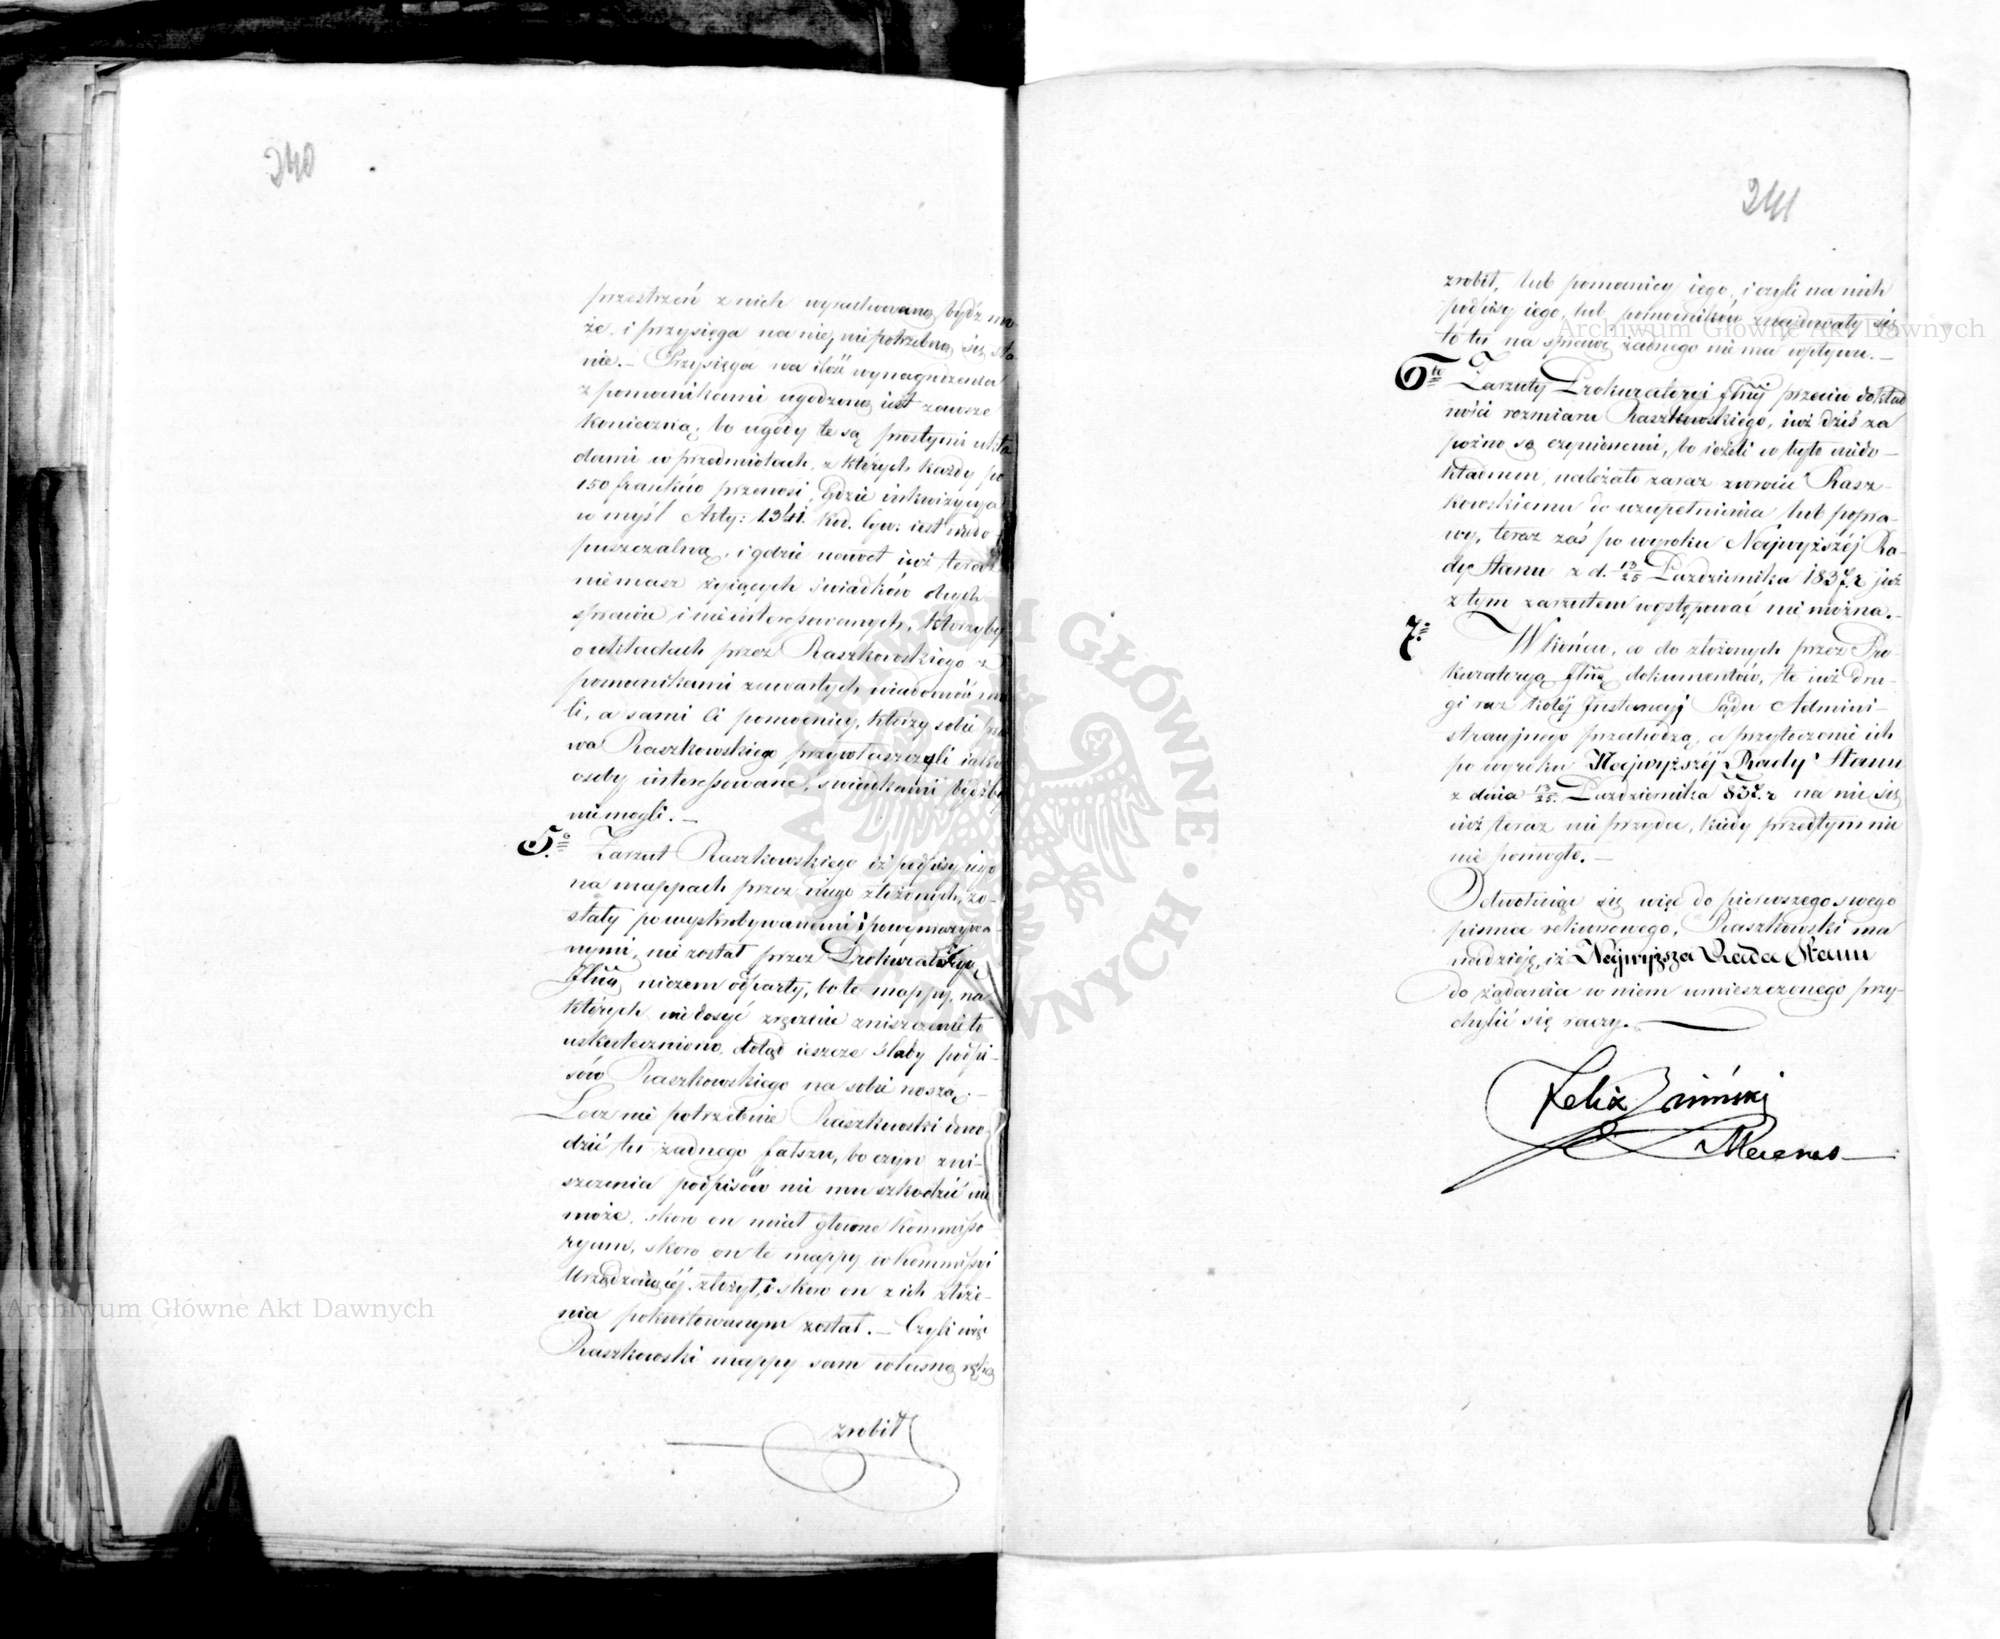 240
przestrzeń z nich wyrachowaną bydź mo
że, i przysięga na nie, nie potrzebną się sta
nie. – Przysięga na ilość wynagrodzenia
z pomocnikami ugodzoną iest zawsze
konieczną, bo ugody te są prostymi ukła
dami w przedmiotach, z których każdy po
150 franków przenosi, gdzie inkwizycya
w myśl Arty: 1341. Kod. Cyw: iest niedo
puszczalną, i gdzie nawet iuż teraz
niemasz żyjących świadków obcych
sprawie i nieinteressowanych, którzyby
o układach przez Raszkowskiego z
pomocnikami zawartych wiadomość mie
li, a sami Ci pomocnicy, którzy sobie pra
wa Raszkowskiego przywłaszczyli iako
osoby interessowane, świadkami bydźby
niemogli. –
5.º Zarzut Raszkowskiego iż podpisy iego
na mappach przez niego złożonych, zo-
stały powyskrobywanemi i powymazywa
nymi, nie został przez Prokuratoryą
Jlną niczem odparty, bo te mappy, na
których nie dosyć zręcznie zniszczenie to
uskuteczniono, dotąd ieszcze ślady podpi-
sów Raszkowskiego na sobie noszą. –
Lecz nie potrzebnie Raszkowski dowo-
dzić tu żadnego fałszu, bo czyn zni-
szczenia podpisów nic mu szkodzić nie
może, skoro on miał główne Kommisso
ryum, skoro on te mappy w Kommissyi
Urządzaiącéj złożył, i skoro on z ich złoże-
nia pokwitowanym został. – Czyli więc
Raszkowski mappy sam własną ręką
zrobił
241
zrobił, lub pomocnicy iego, i czyli na nich
podpisy iego, lub pomocników znajdowały się
to tu na sprawę żadnego nie ma wpływu. –
6to Zarzuty Prokuratoryi Jlnéj przeciw dokład
ności rozmiaru Raszkowskiego, iuż dziś za
poźno są czynionemi, bo ieżeli co było niedo-
kładnem, należało zaraz zwrócić Rasz-
kowskiemu do uzupełnienia lub popra-
wy, teraz zaś po wyroku Najwyższéj Ra-
dy Stanu z d. 13/25 Października 1837. r już
z tym zarzutem występować nie można. –
7.º W końcu, co do złożonych przez Pro-
kuratoryą Jlną dokumentów, te iuż dru-
gi raz kolej Instancyj Sądu Admini-
stracyjnego przechodzą, a przytoczenie ich
po wyroku Najwyższéj Rady Stanu
z dnia 13/25. Października 837. r na nic się
iuż teraz nie przyda, kiedy przedtym nic
nie pomogło. –
Odwołuiąc się więc do pierwszego swego
pisma rekursowego, Raszkowski ma
nadzieję, iż Najwyższa Rada Stanu
do żądania w niem umieszczonego przy-
chylić się raczy. –
Felix
Mecenas
Archiwum Główne Akt Dawnych
Archiwum Główne Akt Dawnych
ARCHIWUM GŁÓWNE AKT DAWNYCH